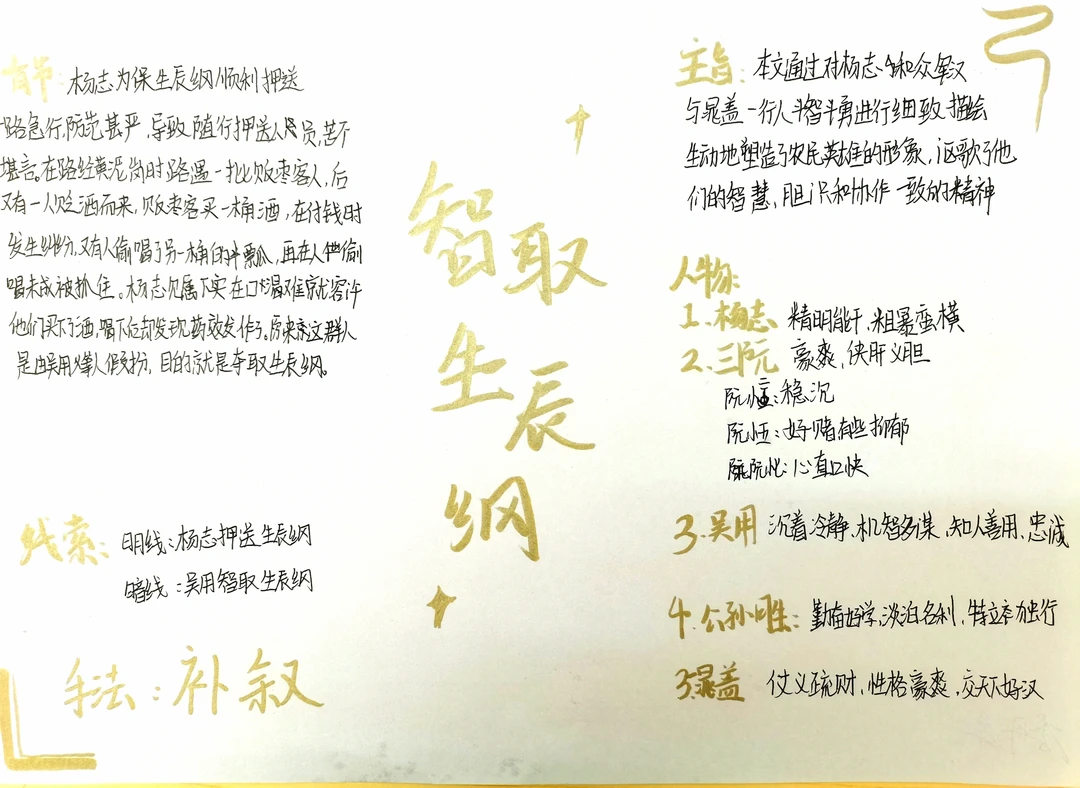 情节: 杨志为保生辰纲顺利押送
路急行,防范甚严,导致随行押送人员,苦不
堪言。在路经黄泥岗时路遇一批贩枣客人,后
又有一人贩酒而来,贩枣客买一桶酒,在付钱时
发生纠纷,又有人偷喝了另一桶的半瓢,再在人偷
喝未成被抓住。杨志属下实在口渴难就容许
他们买下了酒,喝下后却发现药效发作了。原来这群人
是由吴用等人假扮,目的就是夺取生辰纲。
线索: 明线:杨志押送生辰纲
暗线:吴用智取生辰纲
手法:补叙
智取
生辰
纲
主旨: 本文通过对杨志和众军汉
与晁盖一行人斗智斗勇进行细致描绘
生动地塑造了农民英雄的形象,讴歌了他
们的智慧,胆识和协作一致的精神
人物:
1.杨志 精明能干,粗暴蛮横
2.三阮 豪爽,侠肝义胆
阮:稳沉
阮:好赌有些抑郁
阮:心直口快
3.吴用 沉着冷静,机智多谋,知人善用,忠诚
4.公孙胜: 勤奋好学,淡泊名利,特立独行
3.晁盖 仗义疏财,性格豪爽,交天下好汉